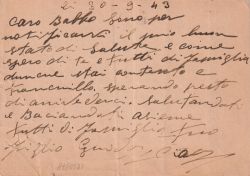 li 30-9-43
Caro Babbo sono per
notificarti il mio buon
stato di salute e come
spero di te e tutti di famiglia
dunque stai contento e
tranquillo, sperando presto
di arivederci. Salutandoti
e Baciandoti asieme
tutti di famiglia tuo
figlio Guido. Ciao